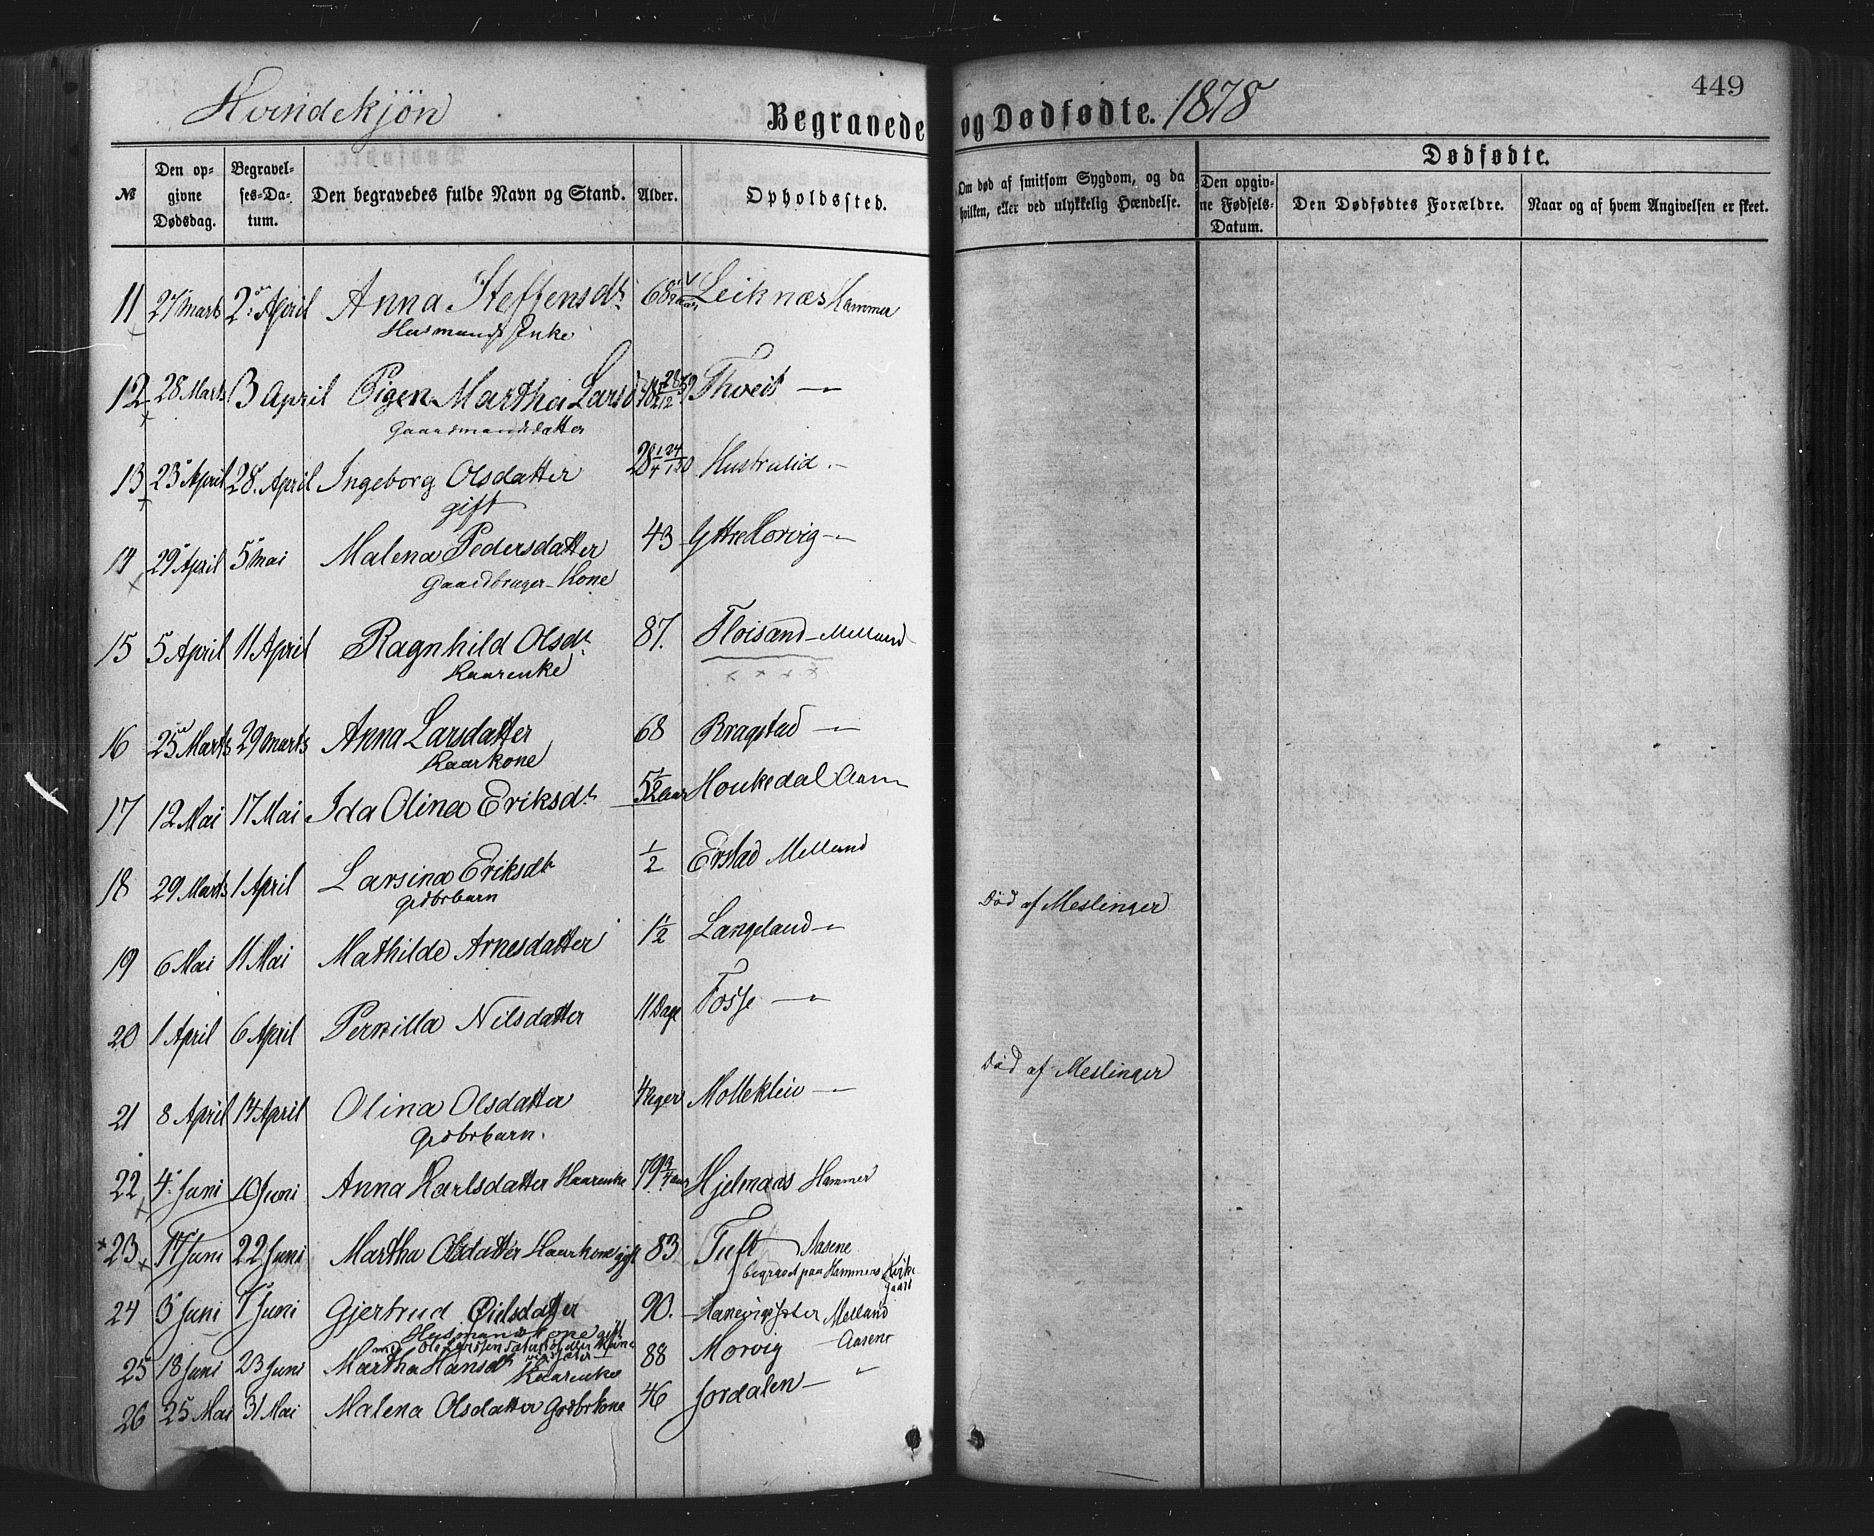 Kvindekjön Begravede og Dødfødte. 1878 449
Dødfødte.
№ Den opgivne Dødsdag. Begravelses-Datum. Den begravedes fulde Navn og Stand. Alder. Opholdssted. Om død af smitsom Sygdom, og da hvilken, eller ved ulykkelig Hændelse. Den opgivne Fødsels-Datum. Den Dødfødtes Forældre. Naar og af hvem Angivelsen er skeet.
11 27 Marts 2. April Anna Steffensdt. 68 Leiknæs Hammer
Husmands Enke
12 28 Marts 3 April Pigen Martha Larsd Thveit — "
Gaardmandsdatter
13 23 April 28. April Ingeborg Olsdatter 28 1/4 Hustrulid —
gift
14 29 April 5 Mai Malena Pedersdatter 43 Yttre Morvig — "
Gaardbruger-Kone
15 5 April 11 April Ragnhild Olsdt. 87. Floisand — Melland
Kaarenke
16 25 Marts 29 Marts Anna Larsdatter 68 Bragstad — "
Kaarkone
17 12 Mai 17 Mai Ida Olina Eriksdt. 5 1/2 Aar Houkedal Aasn
18 29 Marts 1 April Larsina Eriksdt. 1/2 Erstad Melland
Grdbrbarn
Død af Meslinger
19 6 Mai 11 Mai Mathilde Arnesdatter 1 1/2 Langeland — "
20 1 April 6 April Pernilla Nilsdatter 11 Dage Fosse — "
Død af Meslinger
21 8 April 14 April Olina Olsdatter 4 uger Molleklev — "
Grdbrbarn.
22 4. Juni 10 Juni Anna Karlsdatter Kaarenke 79 3/4 aar Hjelmaas Hammer
23 17 Juni 22 Juni Martha Olsdatter Kaarkone gift 83 Tuft Aasene
begravet paa Hammers Kirke
gaard
24 5 Juni 7 Juni Gjertrud Øielsdatter 90. Hanevigs Melland
Husmandskone gift
med Ole Larssen
25 18 Juni 23 Juni Martha Hansdt. 88 Morvig Aasene
Kaarenke
26 25 Mai 31 Mai Malena Olsdatter Grdbrkone 46 Jordalen — "